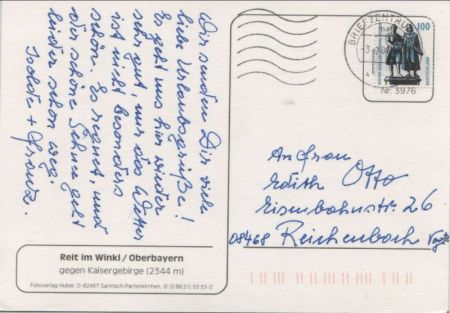 Wir senden Dir viele
liebe Urlaubsgrüße!
Es geht uns hier wieder
sehr gut, nur das Wetter
ist nicht besonders
schön. Es regnet, und
der schöne Schnee geht
leider schon weg.
+ Franz.
Reit im Winkl / Oberbayern
gegen Kaisergebirge (2344 m)
Fotoverlag Huber, D-82467 Garmisch-Partenkirchen, ©
BRIEFZENTRUM
100
DEUTSCHLAND
Nr. 3976
An Frau
Edith Otto
Eisenbahnstr. 26
08468 Reichenbach